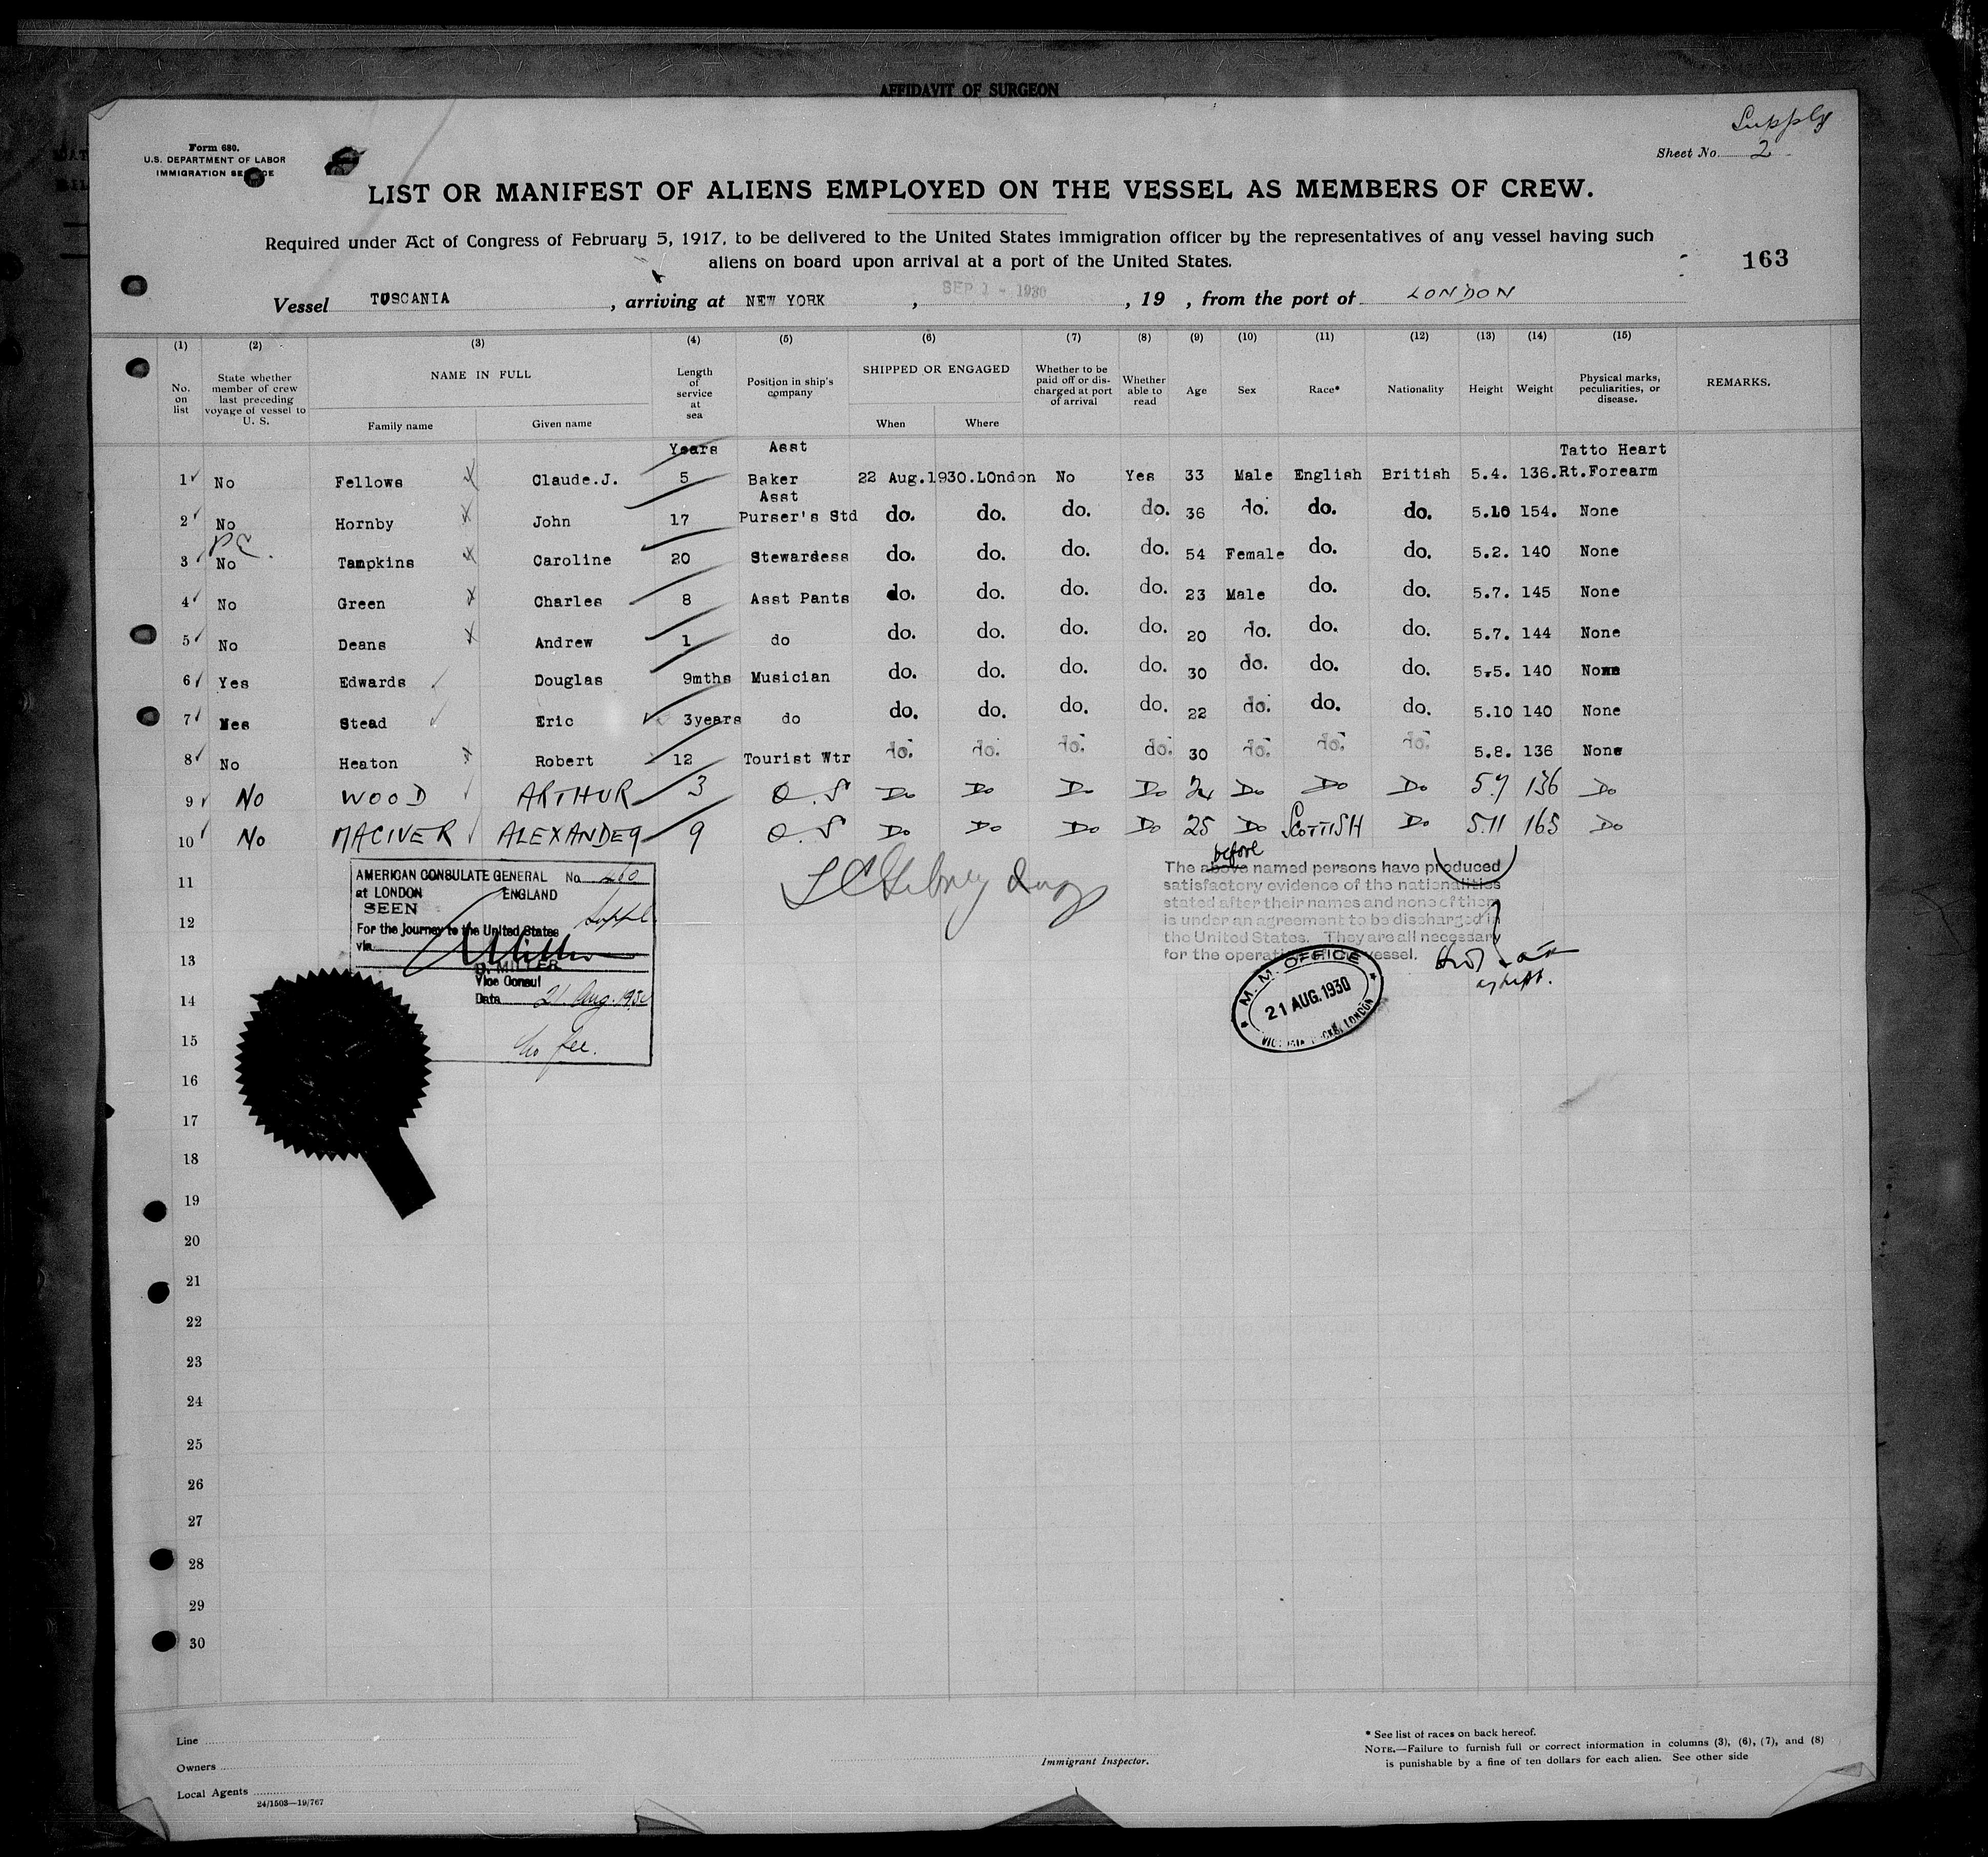 AFFIDAVIT OF SURGEON
Supply
Form 680.
U.S. DEPARTMENT OF LABOR
IMMIGRATION SERVICE
Sheet No. 2
LIST OR MANIFEST OF ALIENS EMPLOYED ON THE VESSEL AS MEMBERS OF CREW.
Required under Act of Congress of February 5, 1917, to be delivered to the United States immigration officer by the representatives of any vessel having such
aliens on board upon arrival at a port of the United States.
163
Vessel TUSCANIA , arriving at NEW YORK , SEP 1 - 1930 , 19 , from the port of LONDON
(1) (2) (3) (4) (5) (6) (7) (8) (9) (10) (11) (12) (13) (14) (15)
No. on list
State whether member of crew last preceding voyage of vessel to U. S.
NAME IN FULL
Family name
Given name
Length of service at sea
Position in ship's company
SHIPPED OR ENGAGED
When
Where
Whether to be paid off or discharged at port of arrival
Whether able to read
Age
Sex
Race*
Nationality
Height
Weight
Physical marks, peculiarities, or disease.
REMARKS.
Years Asst Tatto Heart
1 No Fellows Claude.J. 5 Baker 22 Aug.1930.LOndon No Yes 33 Male English British 5.4. 136. Rt.Forearm
Asst
2 No Hornby John 17 Purser's Std do. do. do. do. 36 do. do. do. 5.10 154. None
3 No Tampkins Caroline 20 Stewardess do. do. do. do. 54 Female do. do. 5.2. 140 None
4 No Green Charles 8 Asst Pants do. do. do. do. 23 Male do. do. 5.7. 145 None
5 No Deans Andrew 1 do do. do. do. do. 20 do. do. do. 5.7. 144 None
6 Yes Edwards Douglas 9mths Musician do. do. do. do. 30 do. do. do. 5.5. 140 None
7 Yes Stead Eric 3years do do. do. do. do. 22 do. do. do. 5.10 140 None
8 No Heaton Robert 12 Tourist Wtr do. do. do. do. 30 do. do. do. 5.8. 136 None
9 No WOOD ARTHUR 3 O.S Do Do Do Do 24 Do Do Do 5.7 136 Do
10 No MACIVER ALEXANDER 9 O.S Do Do Do Do 25 Do SCOTTISH Do 5.11 165 Do
11
12
13
14
15
16
17
18
19
20
21
22
23
24
25
26
27
28
29
30
AMERICAN CONSULATE GENERAL No 460
at LONDON ENGLAND
SEEN
For the journey to the United States
via
D. MILLER
Vice Consul
Date 21 Aug. 1930
No fee.
before
The above named persons have produced
satisfactory evidence of the nationalities
stated after their names and none of them
is under an agreement to be discharged in
the United States. They are all necessary
for the operation vessel.
M. M. OFFICE
21 AUG. 1930
VICTORIA DOCKS, LONDON
Line
Owners
Local Agents
24/1503—19/767
Immigrant Inspector.
* See list of races on back hereof.
NOTE.—Failure to furnish full or correct information in columns (3), (6), (7), and (8)
is punishable by a fine of ten dollars for each alien. See other side